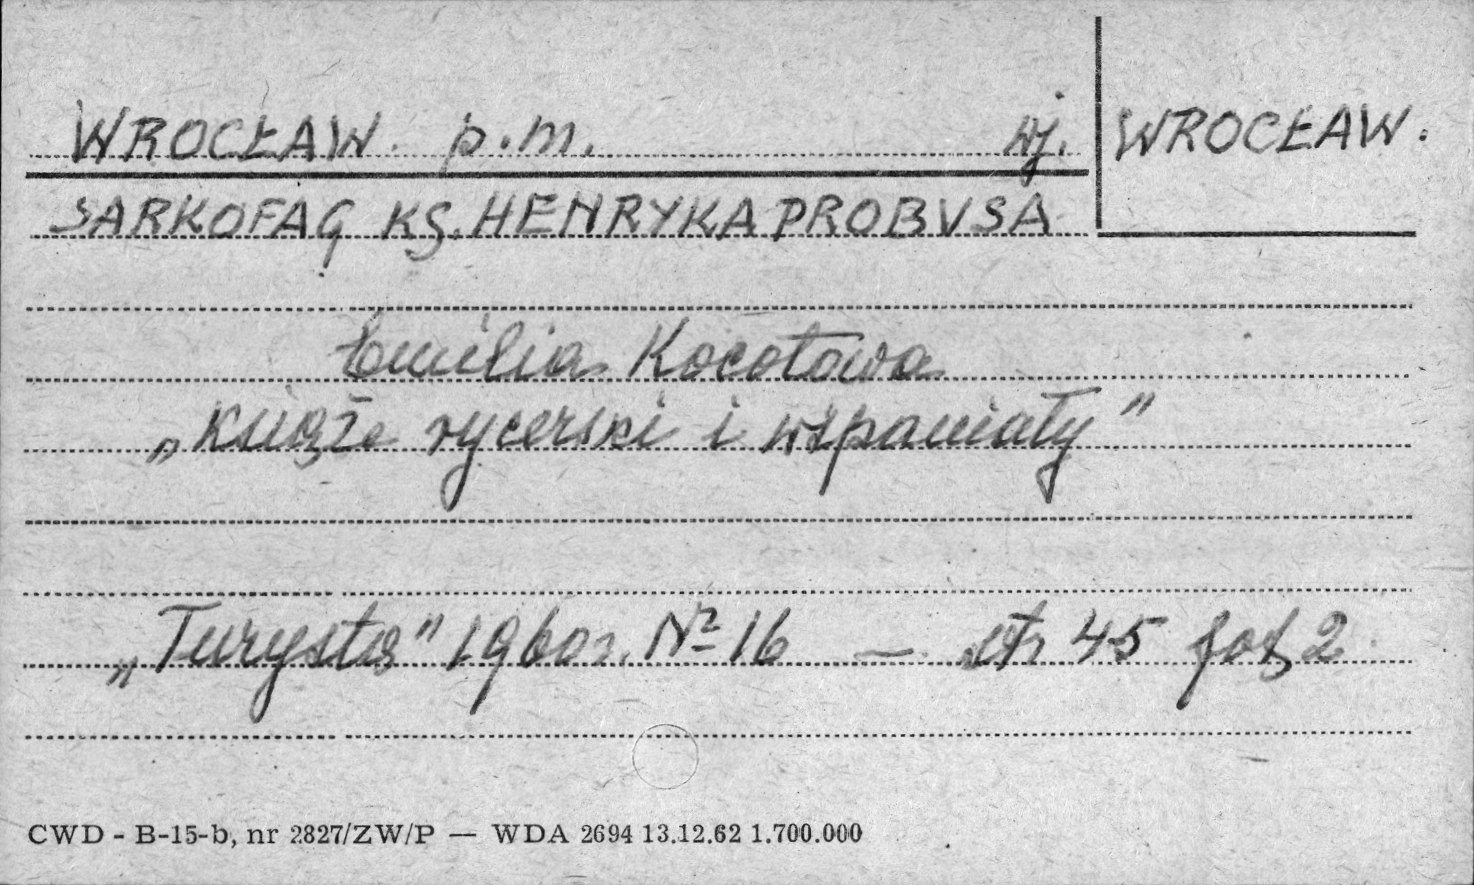 WROCŁAW. p.m. wj. WROCŁAW.
SARKOFAG KS. HENRYKA PROBUSA
Emilia Kocotowa
„Książe rycerski i wspaniały”
„Turysta” 1960r. Nº 16 — str 45 fot 2
CWD - B-15-b, nr 2827/ZW/P — WDA 2694 13.12.62 1.700.000